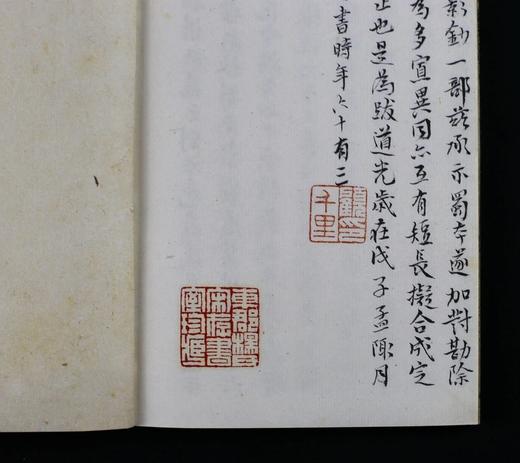 影鈔一部茲承示蜀本遂加對勘除
為多異同亦互有短長擬合成定
也是為跋道光歲在戊子孟陬月
書時年六十有三
顧印
千里
東郡楊
宋存書
室珍藏